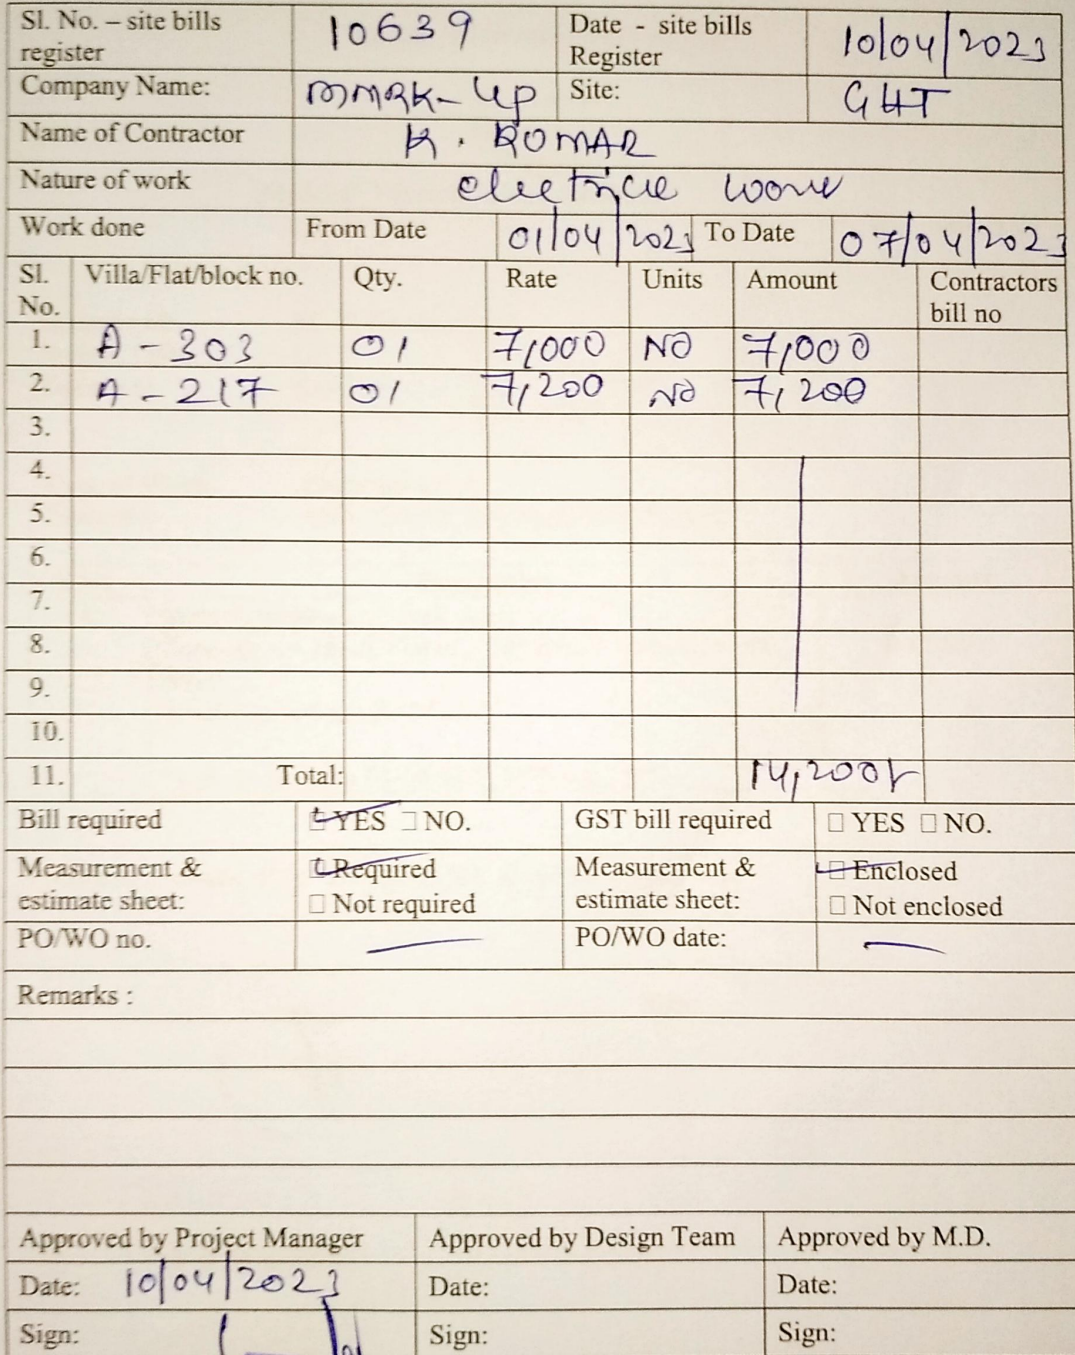 Sl. No. – site bills register 10639 Date - site bills Register 10/04/2023
Company Name: MMRK-UP Site: GHT
Name of Contractor K. ROMAR
Nature of work electricle work
Work done From Date 01/04/2023 To Date 07/04/2023
Sl. No. Villa/Flat/block no. Qty. Rate Units Amount Contractors bill no
1. A - 303 01 7,000 NO 7,000
2. A - 217 01 7,200 NO 7,200
3.
4.
5.
6.
7.
8.
9.
10.
11. Total: 14,200/-
Bill required □ YES □ NO. GST bill required □ YES □ NO.
Measurement & estimate sheet: □ Required □ Not required Measurement & estimate sheet: □ Enclosed □ Not enclosed
PO/WO no. — PO/WO date: —
Remarks :
Approved by Project Manager Approved by Design Team Approved by M.D.
Date: 10/04/2023 Date: Date:
Sign: Sign: Sign: